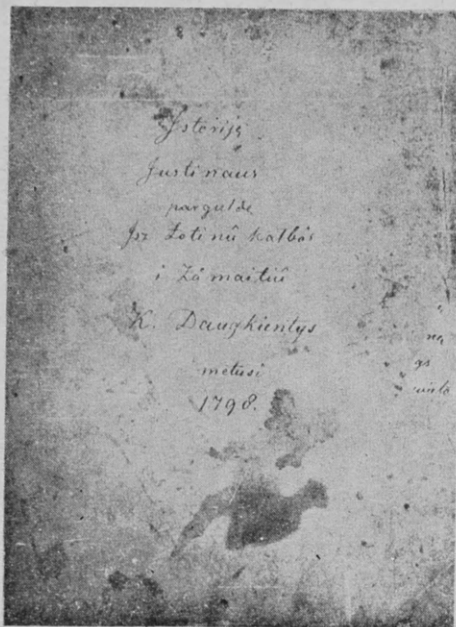 Istoriję
Justinaus
pargulde
Isz Lotinû kalbôs
i Zámaitiû
K. Dauzkientys
metusi
1798.